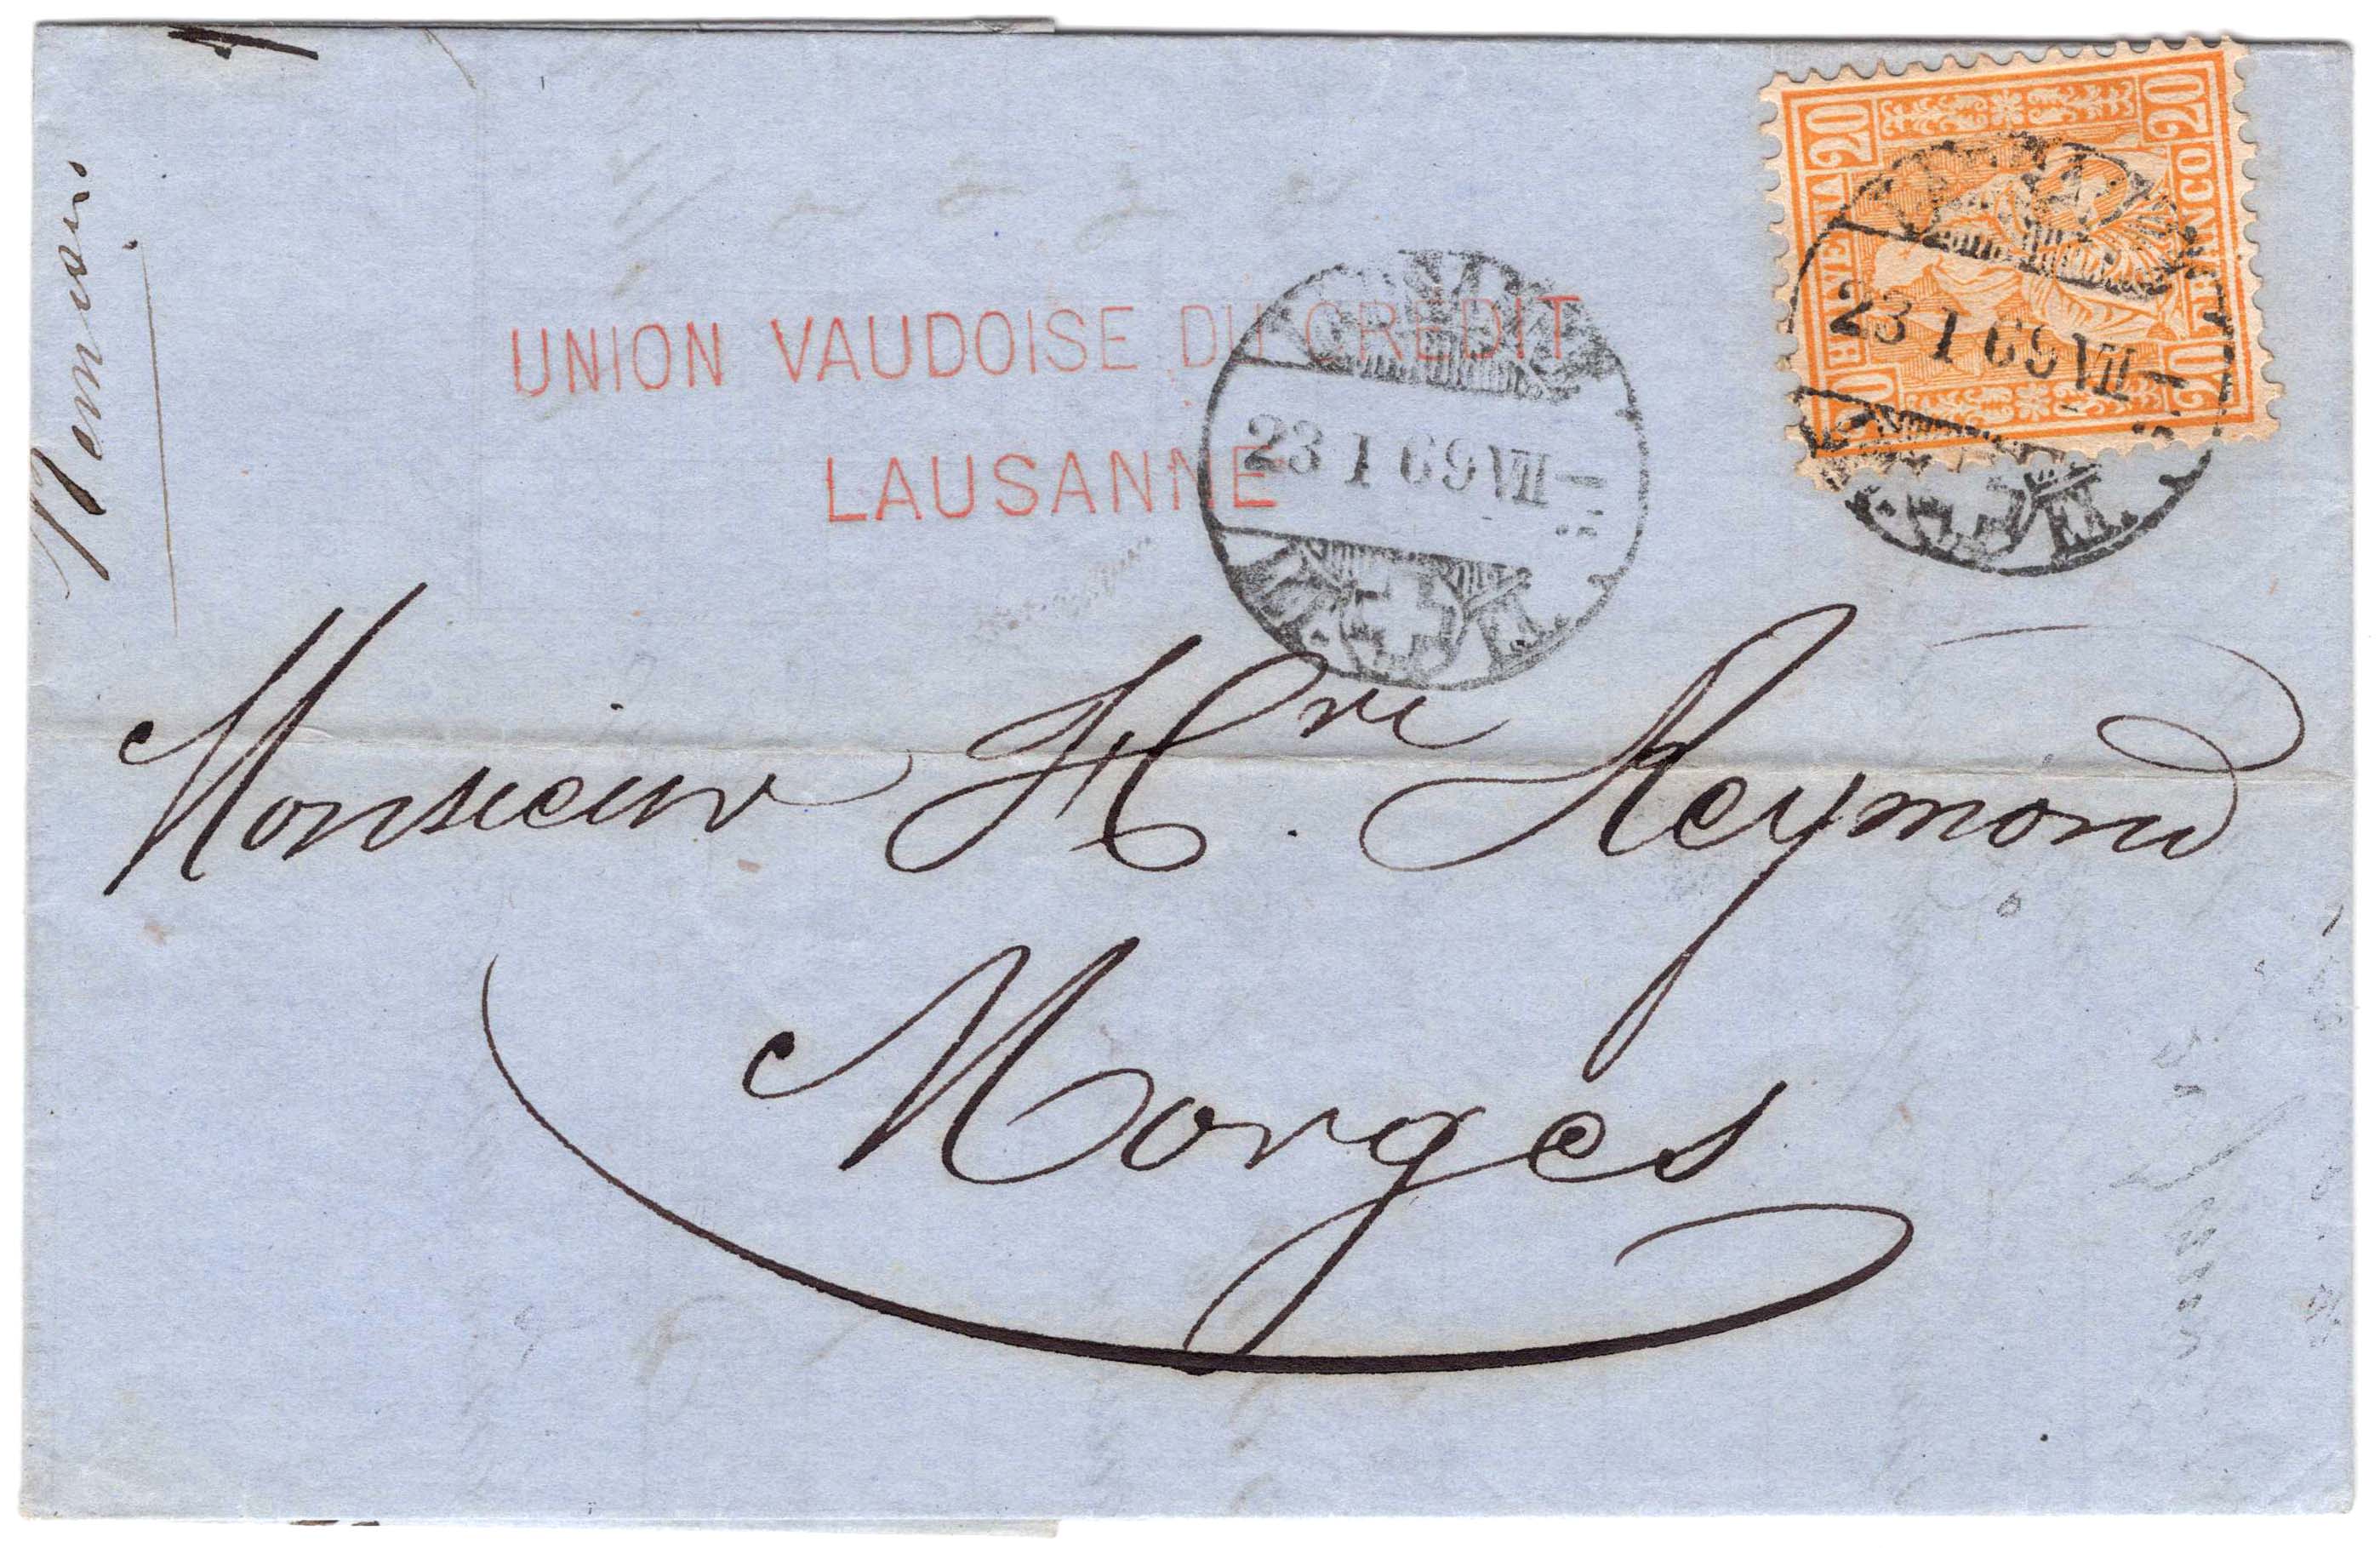 20 20
HELVETIA FRANCO
20 20
23 I 69 VII
UNION VAUDOISE DU CREDIT
LAUSANNE
23 I 69 VII
Monsieur Hri. Reymond
Morges